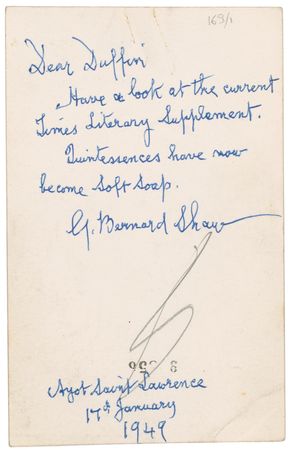 163/1
Dear Duffin
Have a look at the current
Times Literary Supplement.
Quintessences have now
become soft soap.
G. Bernard Shaw
Ayot Saint Lawrence
17th January
1949